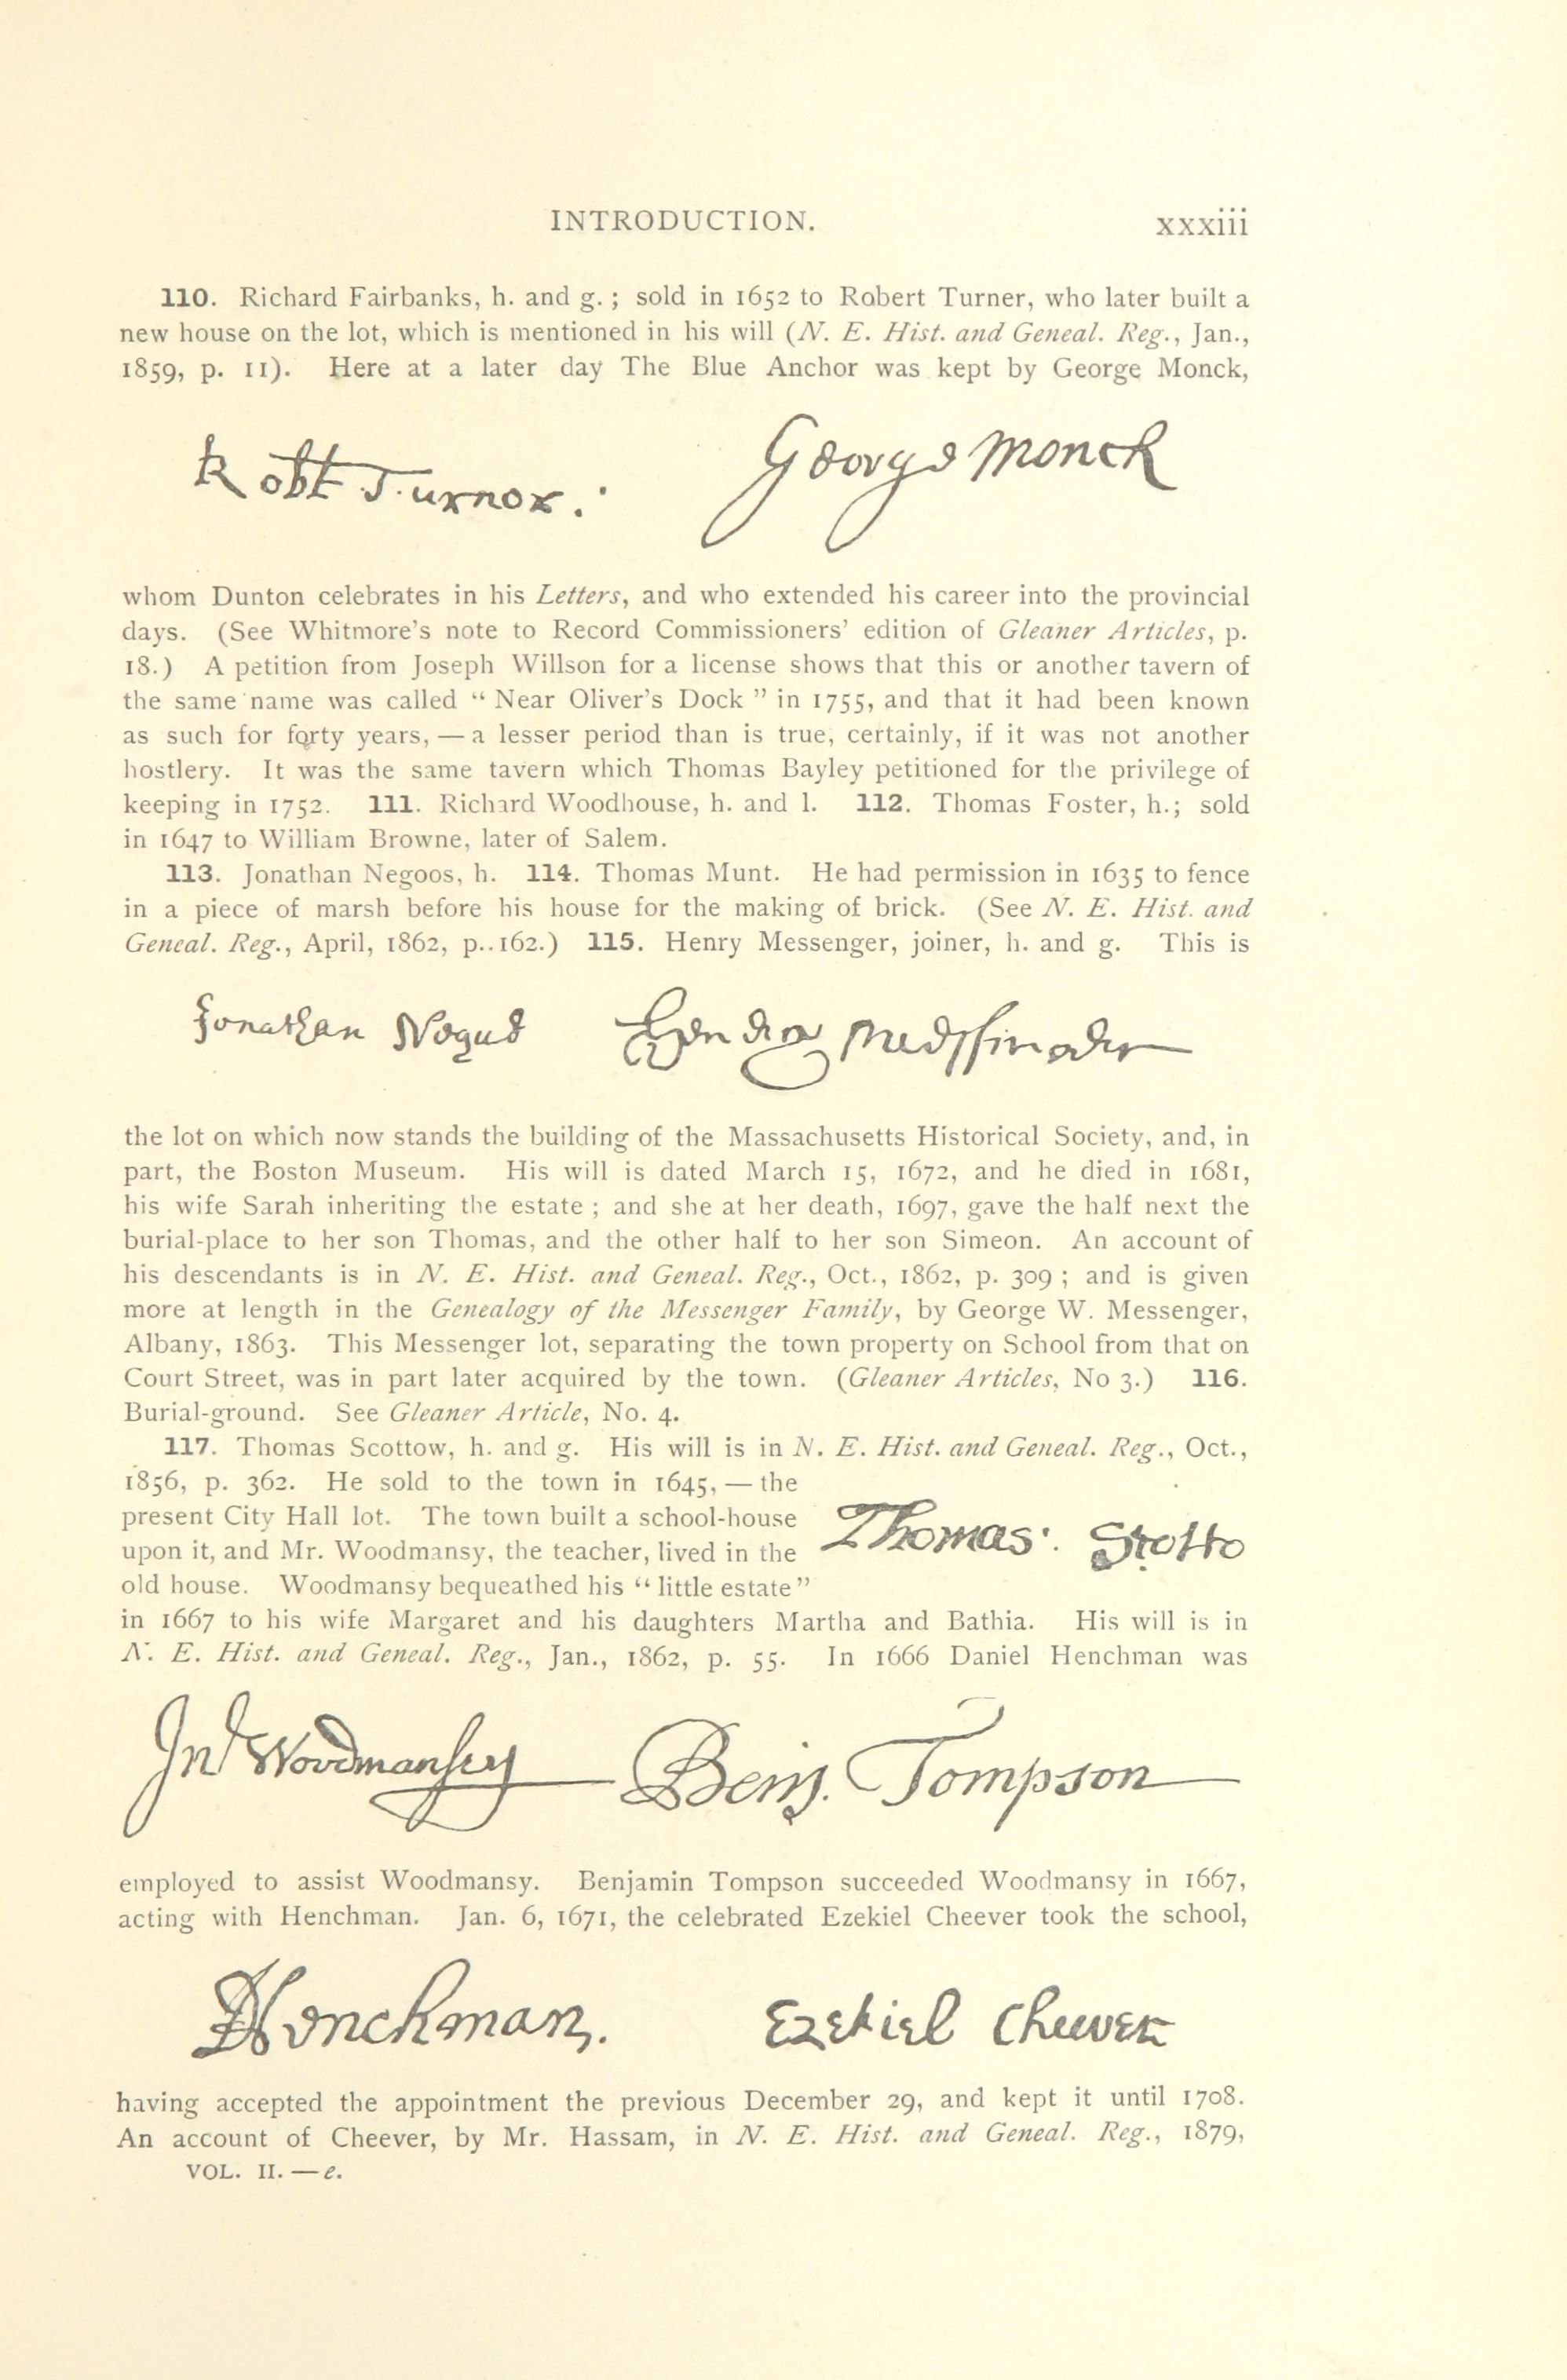 INTRODUCTION. xxxiii
110. Richard Fairbanks, h. and g.; sold in 1652 to Robert Turner, who later built a
new house on the lot, which is mentioned in his will (N. E. Hist. and Geneal. Reg., Jan.,
1859, p. 11). Here at a later day The Blue Anchor was kept by George Monck,
Robt Turnor. George Monck
whom Dunton celebrates in his Letters, and who extended his career into the provincial
days. (See Whitmore's note to Record Commissioners' edition of Gleaner Articles, p.
18.) A petition from Joseph Willson for a license shows that this or another tavern of
the same name was called “Near Oliver's Dock” in 1755, and that it had been known
as such for forty years, — a lesser period than is true, certainly, if it was not another
hostlery. It was the same tavern which Thomas Bayley petitioned for the privilege of
keeping in 1752. 111. Richard Woodhouse, h. and l. 112. Thomas Foster, h.; sold
in 1647 to William Browne, later of Salem.
113. Jonathan Negoos, h. 114. Thomas Munt. He had permission in 1635 to fence
in a piece of marsh before his house for the making of brick. (See N. E. Hist. and
Geneal. Reg., April, 1862, p..162.) 115. Henry Messenger, joiner, h. and g. This is
Jonathan Negus Henry
the lot on which now stands the building of the Massachusetts Historical Society, and, in
part, the Boston Museum. His will is dated March 15, 1672, and he died in 1681,
his wife Sarah inheriting the estate; and she at her death, 1697, gave the half next the
burial-place to her son Thomas, and the other half to her son Simeon. An account of
his descendants is in N. E. Hist. and Geneal. Reg., Oct., 1862, p. 309; and is given
more at length in the Genealogy of the Messenger Family, by George W. Messenger,
Albany, 1863. This Messenger lot, separating the town property on School from that on
Court Street, was in part later acquired by the town. (Gleaner Articles, No 3.) 116.
Burial-ground. See Gleaner Article, No. 4.
117. Thomas Scottow, h. and g. His will is in N. E. Hist. and Geneal. Reg., Oct.,
1856, p. 362. He sold to the town in 1645, — the
present City Hall lot. The town built a school-house
upon it, and Mr. Woodmansy, the teacher, lived in the
old house. Woodmansy bequeathed his “little estate”
Thomas: Scotto
in 1667 to his wife Margaret and his daughters Martha and Bathia. His will is in
N. E. Hist. and Geneal. Reg., Jan., 1862, p. 55. In 1666 Daniel Henchman was
Jno Woodmansey Benj. Tompson
employed to assist Woodmansy. Benjamin Tompson succeeded Woodmansy in 1667,
acting with Henchman. Jan. 6, 1671, the celebrated Ezekiel Cheever took the school,
DHenchman. Ezekiel Cheever
having accepted the appointment the previous December 29, and kept it until 1708.
An account of Cheever, by Mr. Hassam, in N. E. Hist. and Geneal. Reg., 1879,
VOL. II. — e.